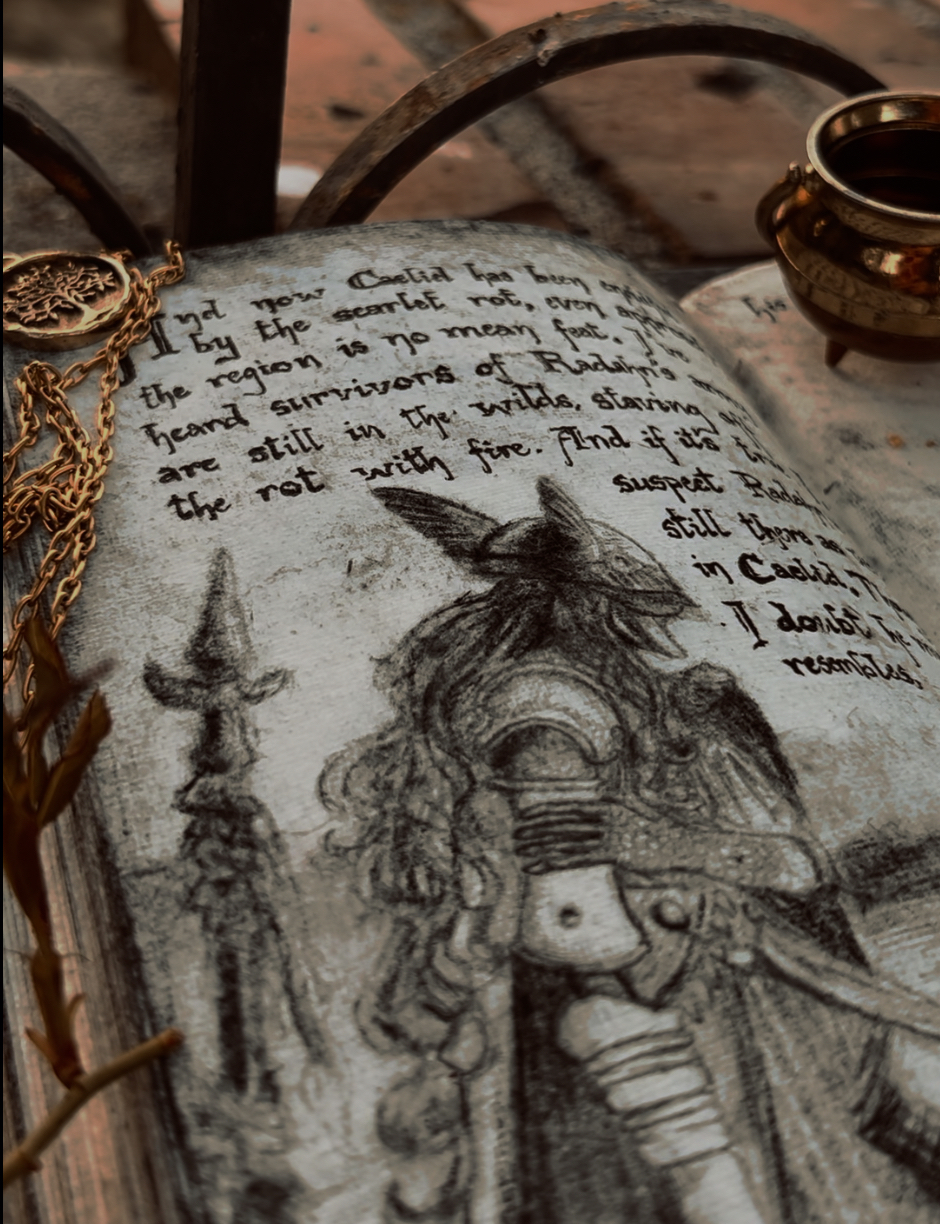 And now Caelid has been
by the scarlet rot, even
the region is no mean feat. I've
heard survivors of Radahn's
are still in the wilds, staving
the rot with fire. And if it's
suspect
still there
in Caelid.
I doubt he
resembles.
his